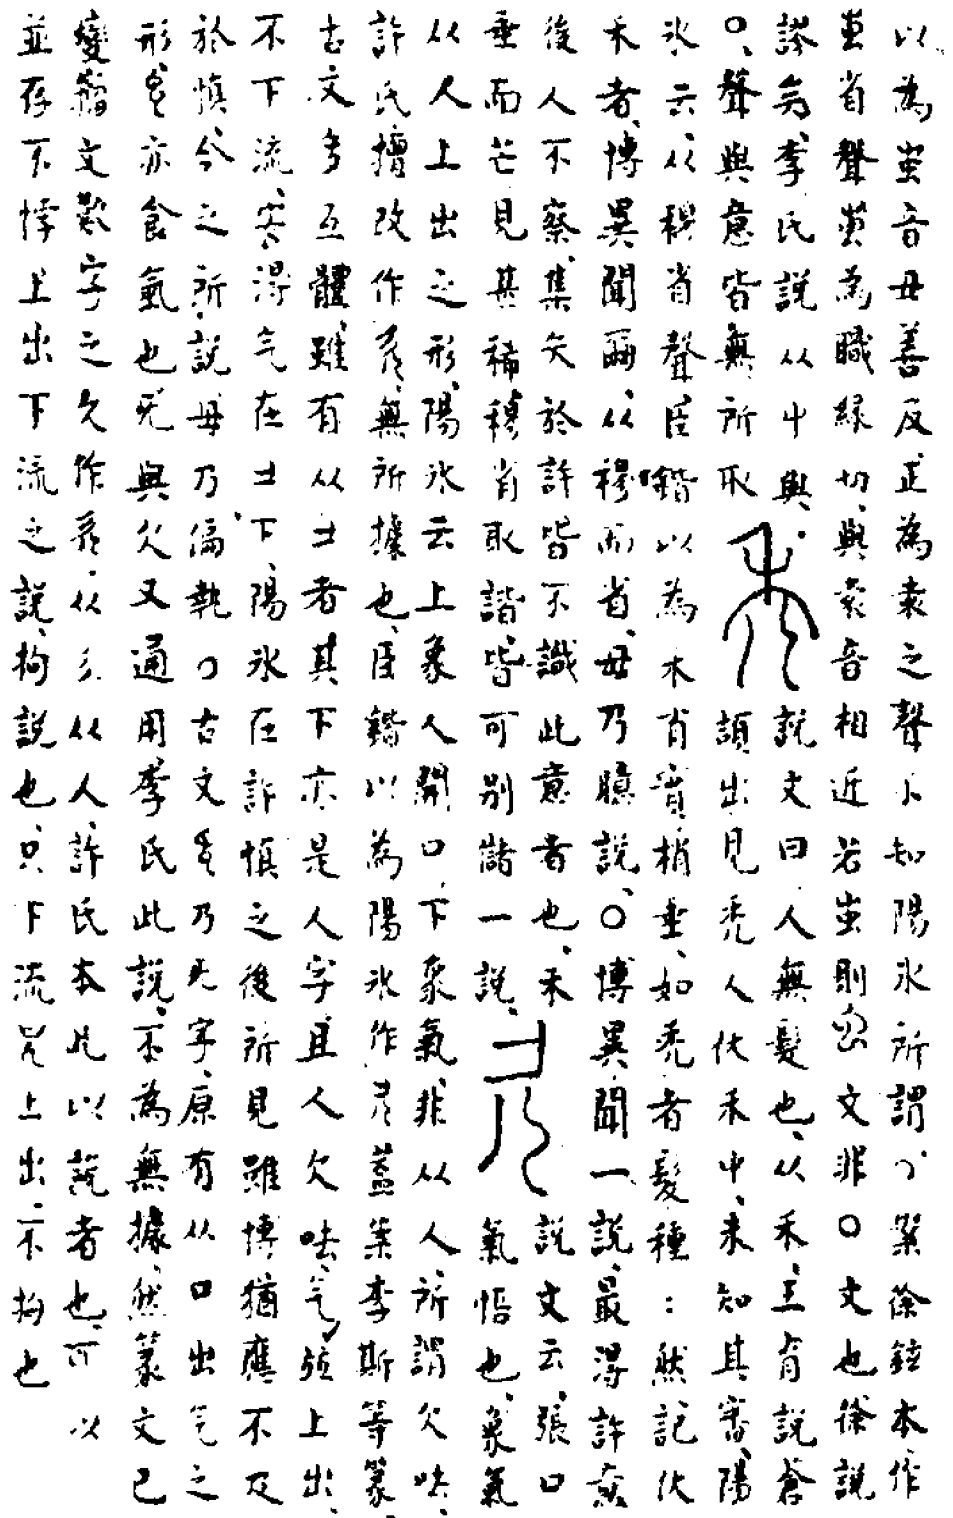 以為蚩音毋善反正為袁之聲卜知陽氷所謂案徐鉉本作
叀省聲蚩為職緣切與袁音相近若虫則文非〇文也徐說
謬矣李氏說从屮與說文曰人無髮也从禾王育說蒼
〇聲與意皆無所取頡出見禿人伏禾中未知其審陽
氷云从穆省聲臣鍇以為木肖實梢垂如禿者髮種〻然記伏
禾者博異聞爾从穆而省毋乃臆說〇博異聞一說最得許意
後人不察集矢於許皆不識此意者也禾說文云張口
垂而芒見甚稀穆肖取諧皆可別儲一說氣悟也象氣
从人上出之形陽氷云上象人開口下象氣非从人所謂欠呿
許氏擅改作無所據也臣鍇以為陽氷作蓋案李斯等篆
古文多互體雖有从者其下亦是人字且人欠呿气弦上出
不下流安得气在下陽氷在許慎之後所見雖博猶應不及
於慎今之所說毋乃偏執〇古文乃旡字原有从口出气之
形亦食氣也旡與欠又通用李氏此說不為無據然篆文已
變籀文歎字之欠作从彡从人許氏本此以說者也可以
並存不悖上出下流之說拘說也只下流上出不拘也